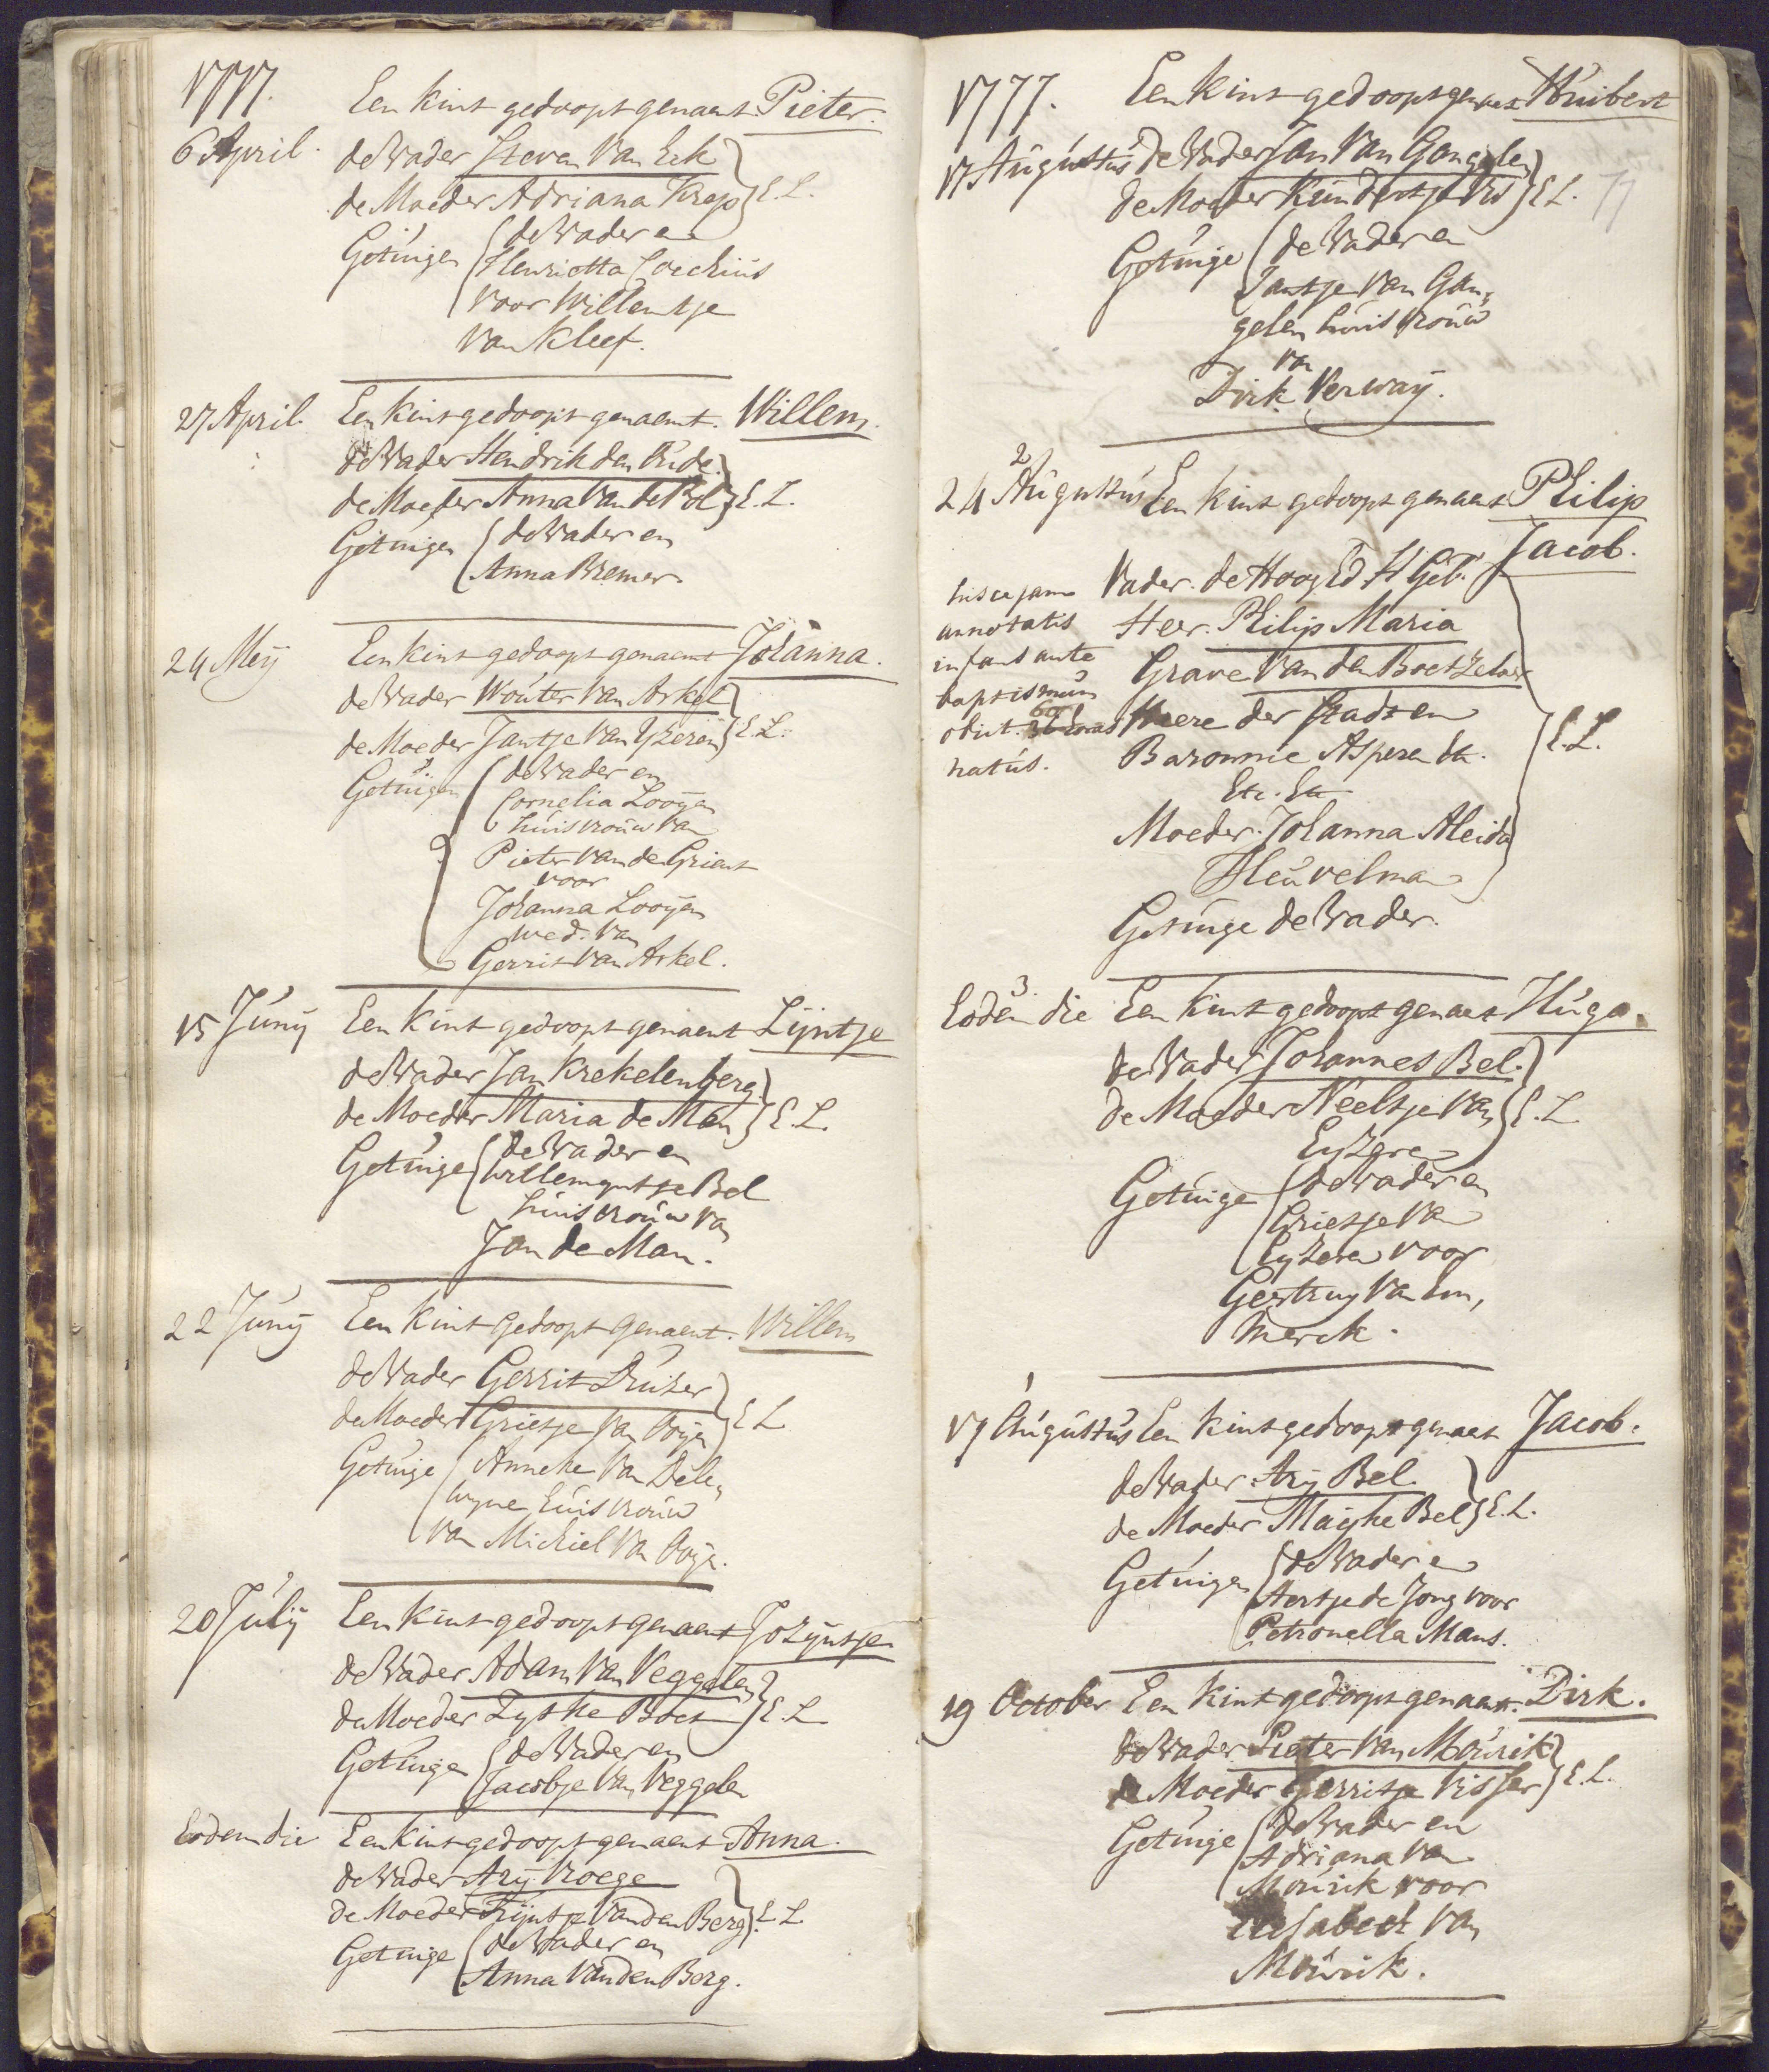 1777.
Een kint gedoopt genaemt Pieter.
6 April. de Vader Steven Van Eck
de Moeder Adriana Krap E. L.
Getuigen de Vader en
Henrietta
voor Willemtje
Van Kleef.
27 April. Een kint gedoopt genaemt. Willem.
de Vader Hendrik den Oude.
de Moeder Anna Van de Pol E. L.
Getuigen de Vader en
Anna Bremer.
24 Meÿ Een kint gedoopt genaemt Johanna.
de Vader Wouter Van Arkel
de Moeder Jantje Van Yzeren E. L.
Getuigen de Vader en
Cornelia Looÿen
huisvrouw van
Pieter Van de Grient
voor
Johanna Looÿen
wed. Van
Gerrit Van Arkel.
15 Junÿ Een kint gedoopt genaemt Lijntje
de Vader Jan Krekelenberg
de Moeder Maria de Man E. L.
Getuige de Vader en
Willemyntje Bel
huisvrouw Van
Jan de Man.
22 Junÿ Een kint gedoopt genaemt. Willem
de Vader Gerrit Druiser
de Moeder Grietje Van Ooijen E L
Getuige Anneke Van Dele,
wyne huisvrouw
van Michiel Van Ooije.
20 Julÿ Een kint gedoopt genaemt Jozijntje
de Vader Adam Van Veggelen
de Moeder Zyske Boet E. L
Getuige de Vader en
Jacobje Van Veggelen
Eodem die Een kint gedoopt genaemt Anna.
de Vader Arÿ Vroege
de Moeder Trijntje Van den Berg E. L.
Getuige de Vader en
Anna Van den Berg.
1777. Een kint gedoopt genaemt Huibert
17 Augustus de Vader Jan Van Gangelen
de Moeder Kundertje Vis E L. 77
Getuige de Vader en
Jantje Van Gan,
gelen huisvrouw
van
Dirk Verwaÿ.
2
24 Augustus Een kint gedoopt genaemt Philip
Jacob.
Vader. de Hoog Ed H Geb.
Heer. Philip Maria
Grave Van den Boetzelaer
Heere der Stadt en
Baronnie Asperen &c.
Etc. Etc
Moeder. Johanna Aleida
Heuvelman E. L.
Getuige de Vader.
hisce jam
annotatis
infans ante
baptismum
obiit. 60
natus.
3.
Eodem die Een kint gedoopt genaemt Hugo.
de Vader Johannes Bel.
de Moeder Neeltje Van
Eyzeren E. L.
Getuige de Vader en
Grietje Van
Eyzeren voor
Geertruy Van Em,
merck.
1
17 Augustus Een kint gedoopt genaemt Jacob.
de Vader Arÿ Bel.
de Moeder Mayke Bel E. L.
Getuigen de Vader en
Aertje de Jong voor
Petronella Mans.
19 October Een kint gedoopt genaemt. Dirk.
de Vader Pieter Van Mourik
de Moeder Gerritje Visser E. L.
Getuige de Vader en
Adriana Van
Mourik voor
Elisabeth Van
Mourik.